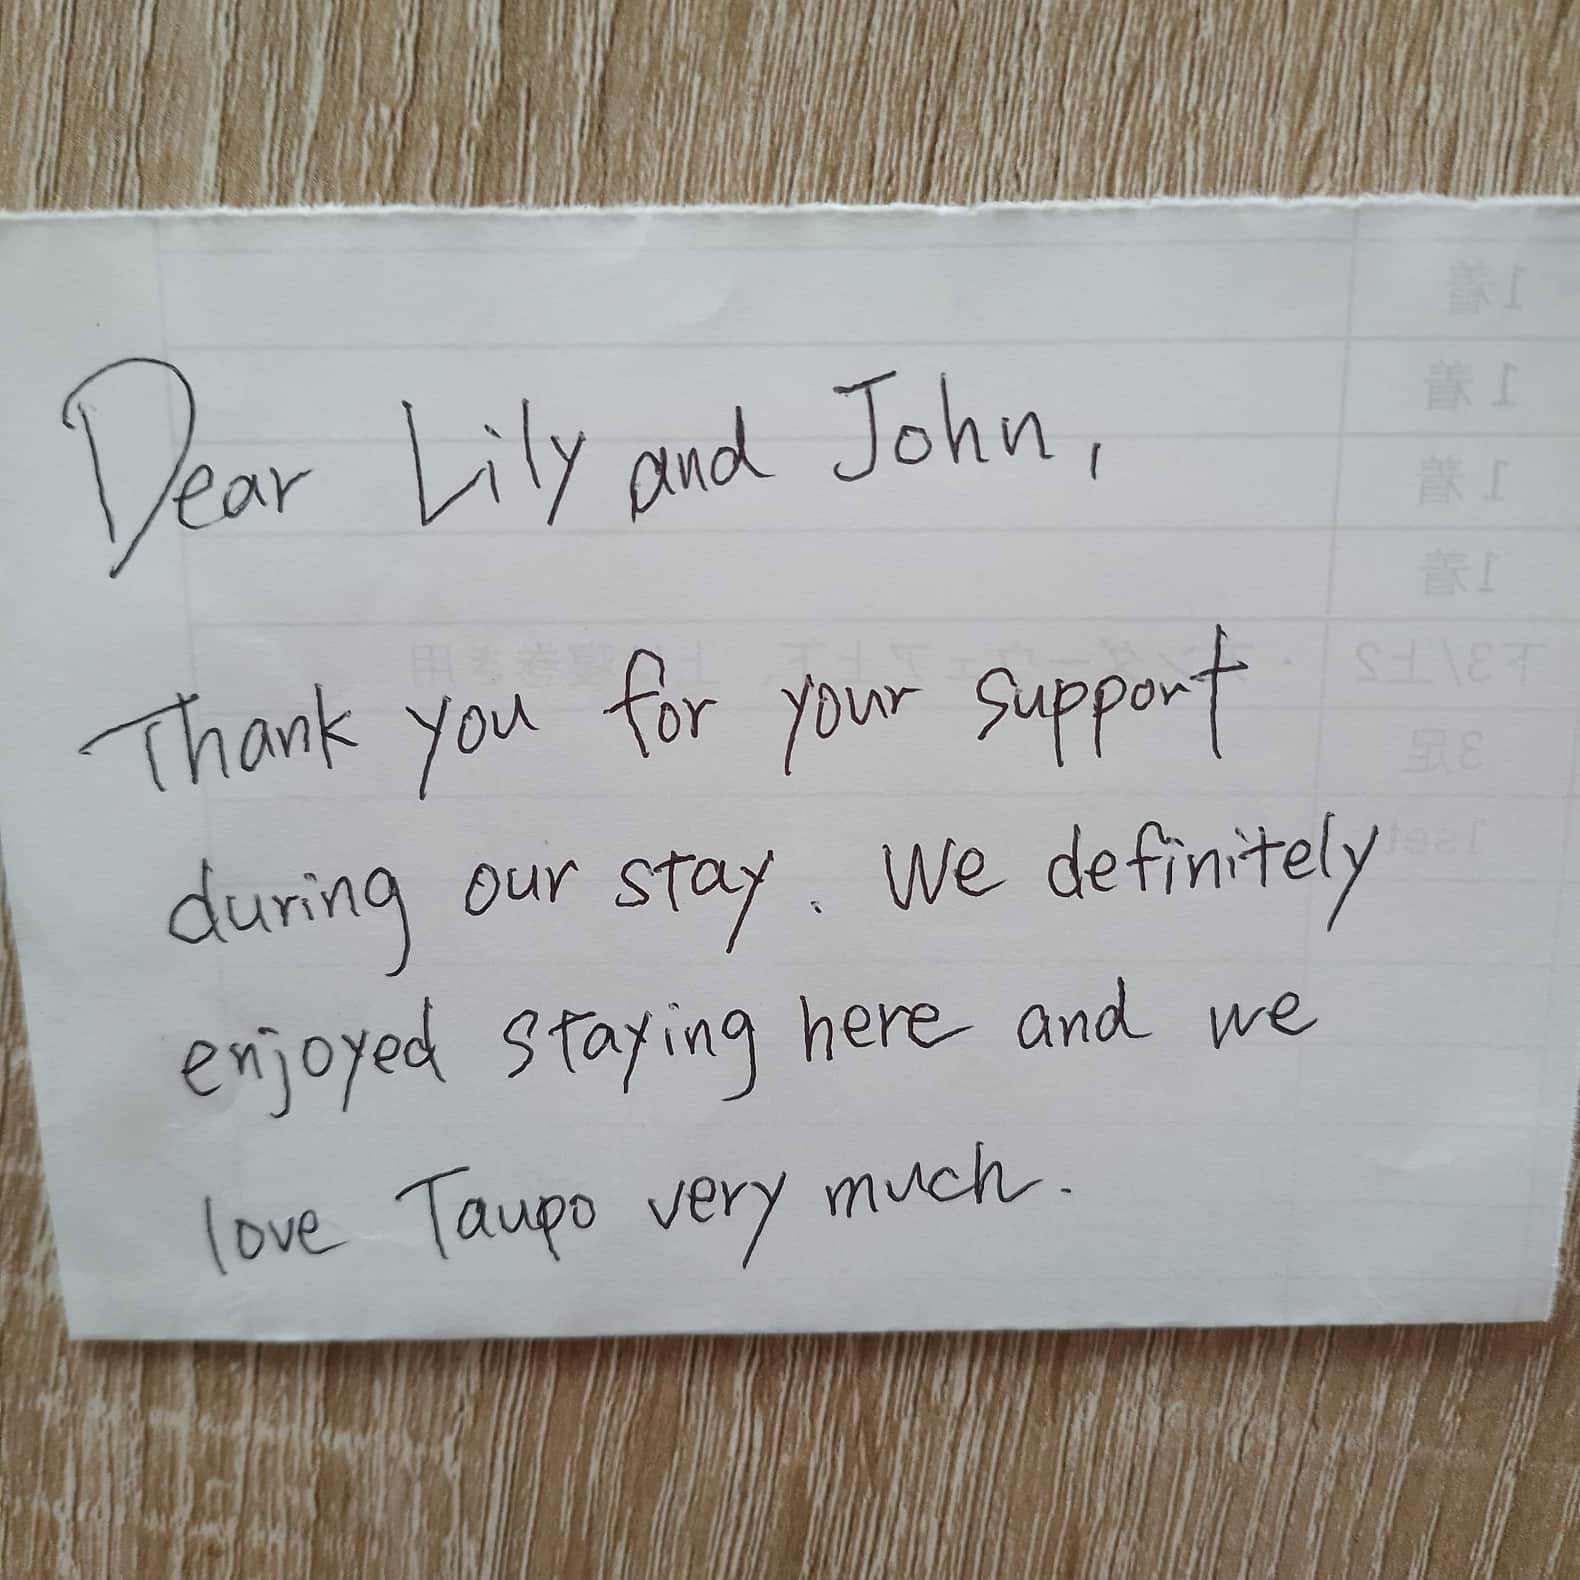 Dear Lily and John,
Thank you for your support
during our stay. We definitely
enjoyed staying here and we
love Taupo very much.
1着
1着
1着
1着
下3/上2
3足
1set